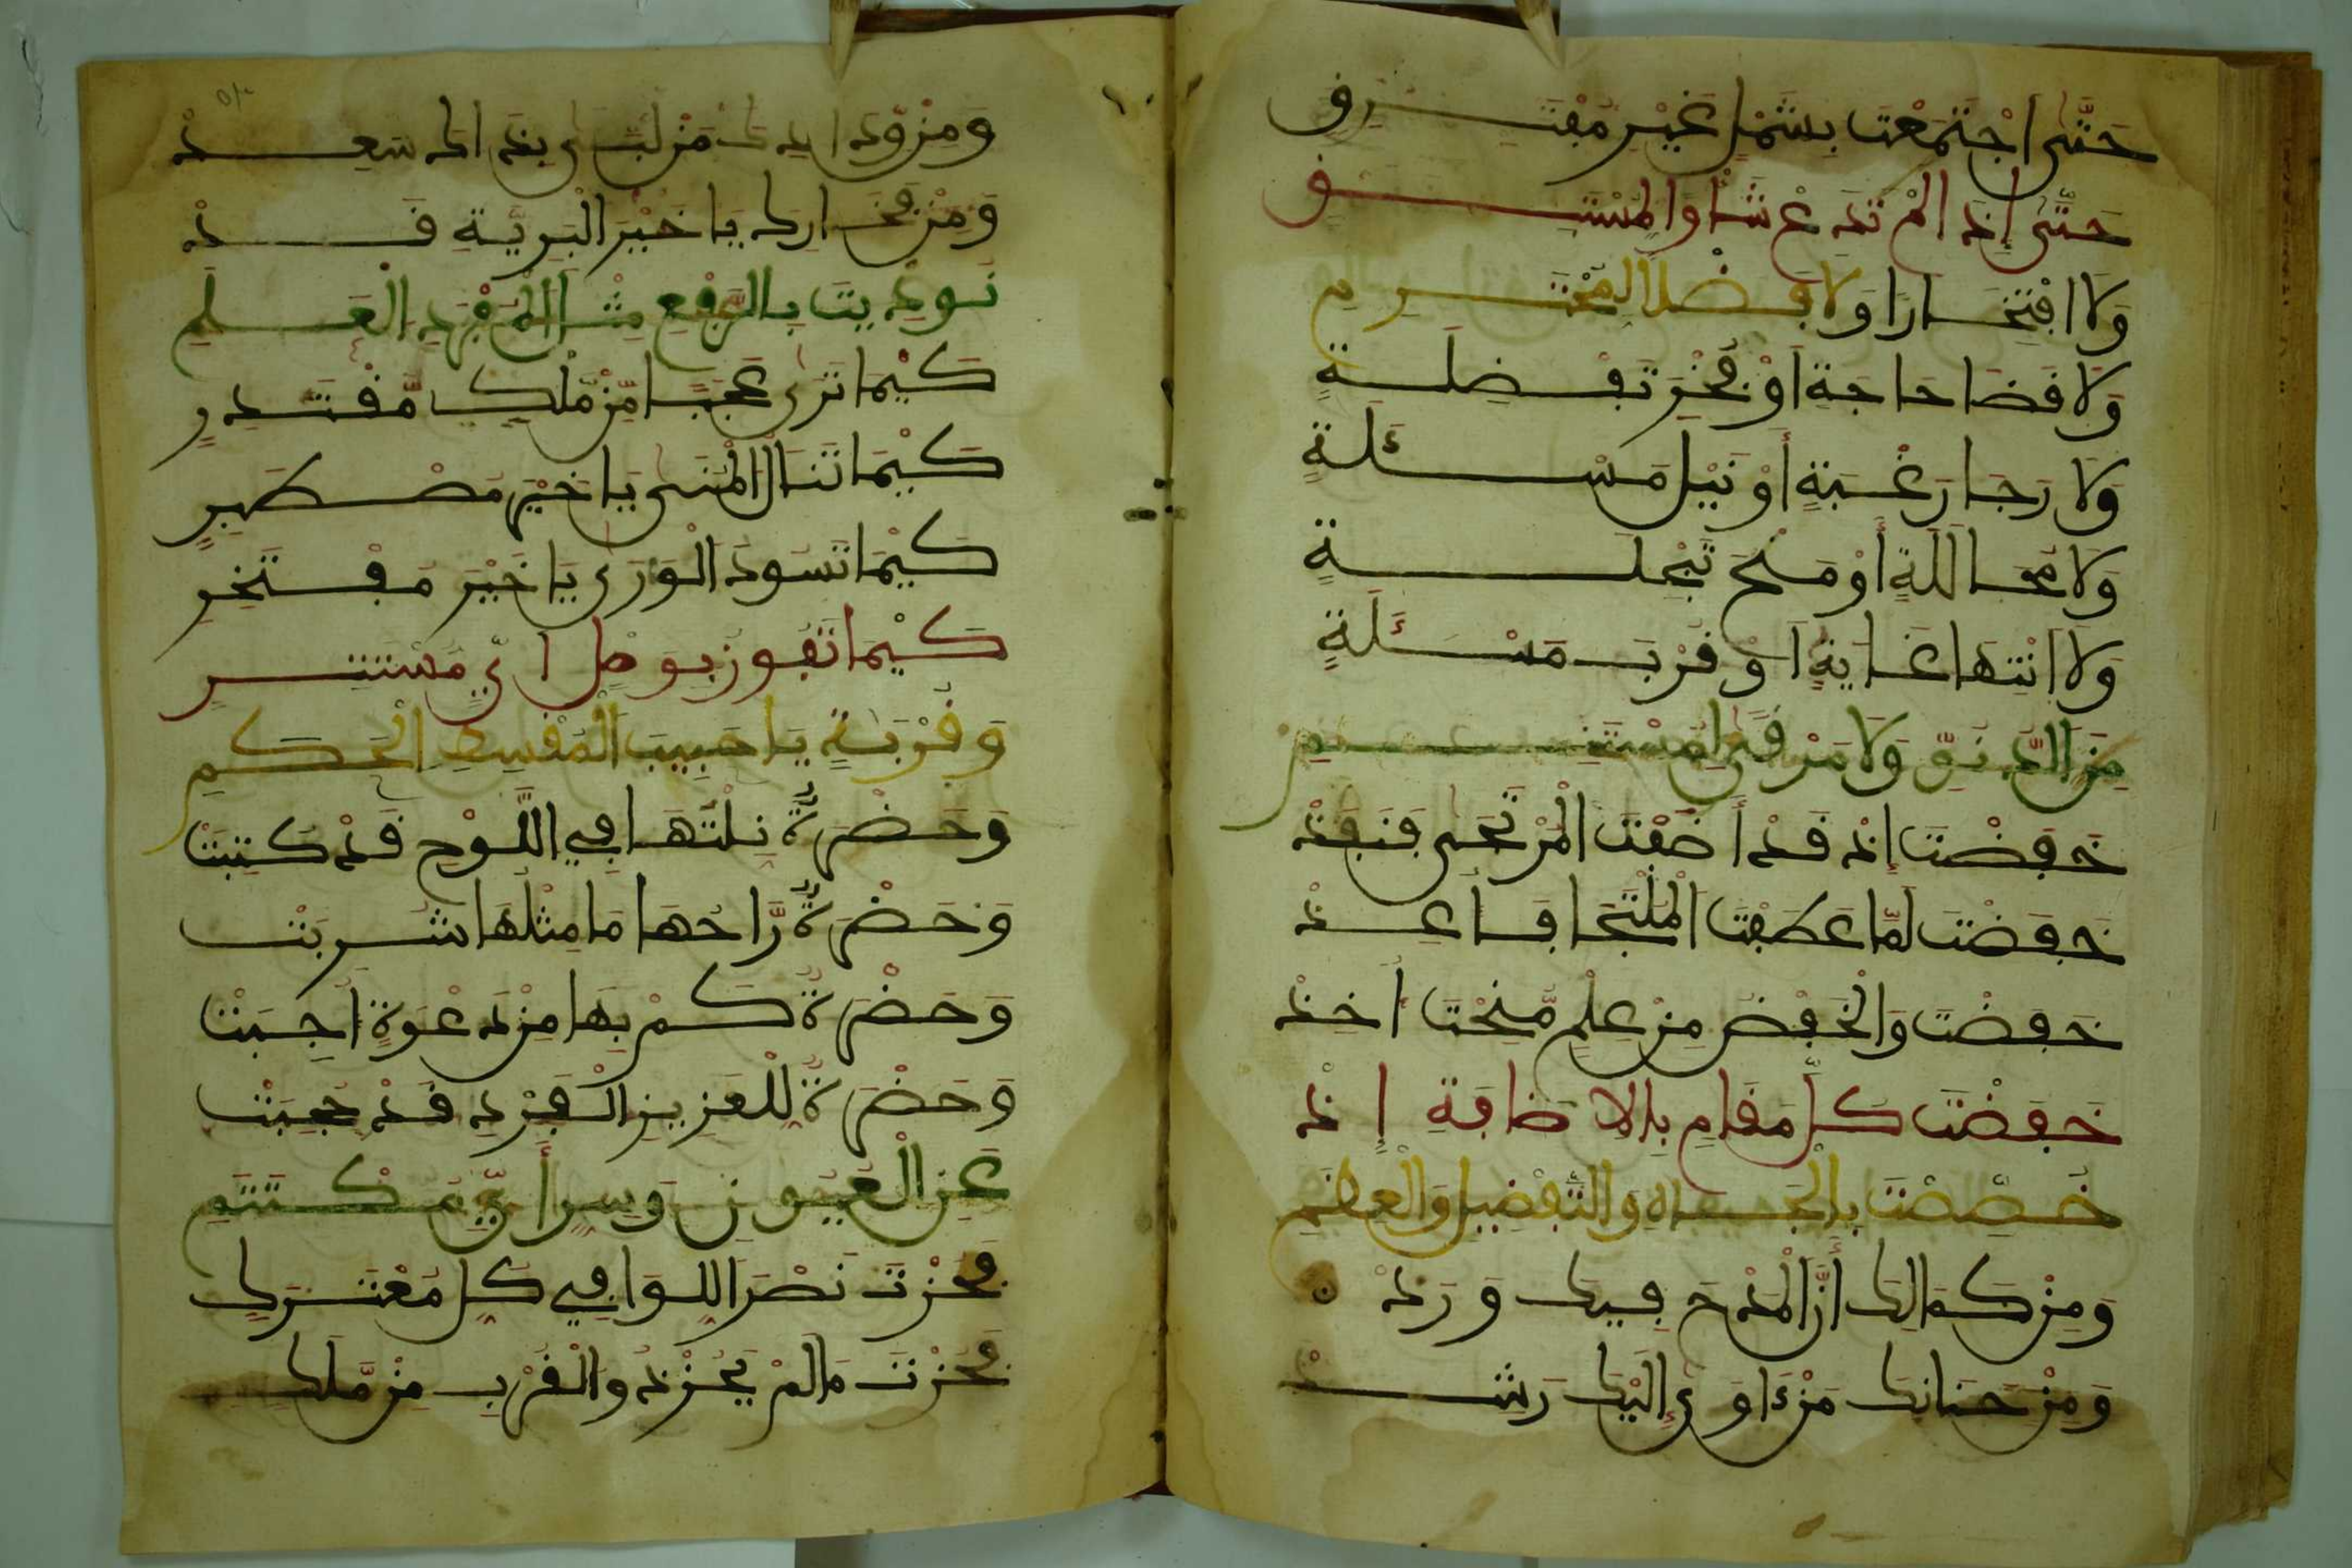 حَتَّى اجْتَمَعْتَ بِشَمْلٍ غَيْرِ مُفْتَرِقِ
حَتَّى إِذَا لَمْ تَدَعْ شَأْوًا لِمُسْتَبِقِ
وَلَا افْتِخَارًا وَلَا فَضْلًا لِمُحْتَرِمِ
وَلَا قَضَا حَاجَةٍ أَوْ فَخْرِ تَفْضِلَةٍ
وَلَا رَجَا رَغْبَةٍ أَوْ نَيْلِ مَسْئَلَةٍ
وَلَا مَحَالَلَةٍ أَوْ مَنْحَ تَبْجِلَةٍ
وَلَا انْتِهَا غَايَةٍ أَوْ قُرْبَ مَسْئَلَةٍ
مِنَ الدُّنُوِّ وَلَا مَرْقًى لِمُسْتَنِمِ
خَفَضْتَ إِذْ قَدْ أَضَفْتَ الْمُرْتَجَى فَنَفَذْ
خَفَضْتَ لَمَّا عَطَفْتَ الْمُلْتَجَا فَأَعِذْ
خَفَضْتَ وَالْخَفْضُ مِنْ عِلْمٍ مُنِحْتَ أُخِذْ
خَفَضْتَ كُلَّ مَقَامٍ بِالْإِضَافَةِ إِذْ
خُصِّصْتَ بِالْجَاهِ وَالتَّفْضِيلِ وَالْعِظَمِ
وَمِنْ كَمَالِكَ أَنَّ الْمَدْحَ فِيكَ وَرَدْ
وَمِنْ حَنَانِكَ مَنْ ءَاوَى إِلَيْكَ رَشَدْ
وَمِنْ وِدَادِكَ مَنْ لَبَّى بِذَاكَ سَعِدْ
وَمِنْ فَخَارِكَ يَا خَيْرَ الْبَرِيَّةِ قَدْ
نُودِيتَ بِالرَّفْعِ مِثْلَ الْمُفْرَدِ الْعَلَمِ
كَيْمَا تَرَى عَجَبًا مِنْ مَلِكٍ مُقْتَدِرٍ
كَيْمَا تَنَالَ الْمُنَى يَا خَيْرَ مُصْطَبِرٍ
كَيْمَا تَسُودَ الْوَرَى يَا خَيْرَ مُفْتَخِرٍ
كَيْمَا تَفُوزَ بِوَصْلٍ أَيِّ مُسْتَتِرٍ
وَقُرْبَةٍ يَا حَبِيبَ الْمُقْسِطِ الْحَكَمِ
وَحَضْرَةٌ نِلْتَهَا فِي اللَّوْحِ قَدْ كُتِبَتْ
وَحَضْرَةٌ رَاحُهَا مَا مِثْلُهَا شُرِبَتْ
وَحَضْرَةٌ كَمْ بِهَا مِنْ دَعْوَةٍ أُجِبَتْ
وَحَضْرَةٌ لِلْعَزِيزِ الْفَرْدِ قَدْ حُجِبَتْ
عَنِ الْعُيُونِ وَسِرٍّ أَيِّ مُكْتَتَمِ
فَحُزْتَ نَصْرَ اللِّوَا فِي كُلِّ مُعْتَرَكِ
فَحُزْتَ مَا لَمْ يَحُزْهُ وَالْقُرْبِ مِنْ مَلِكِ